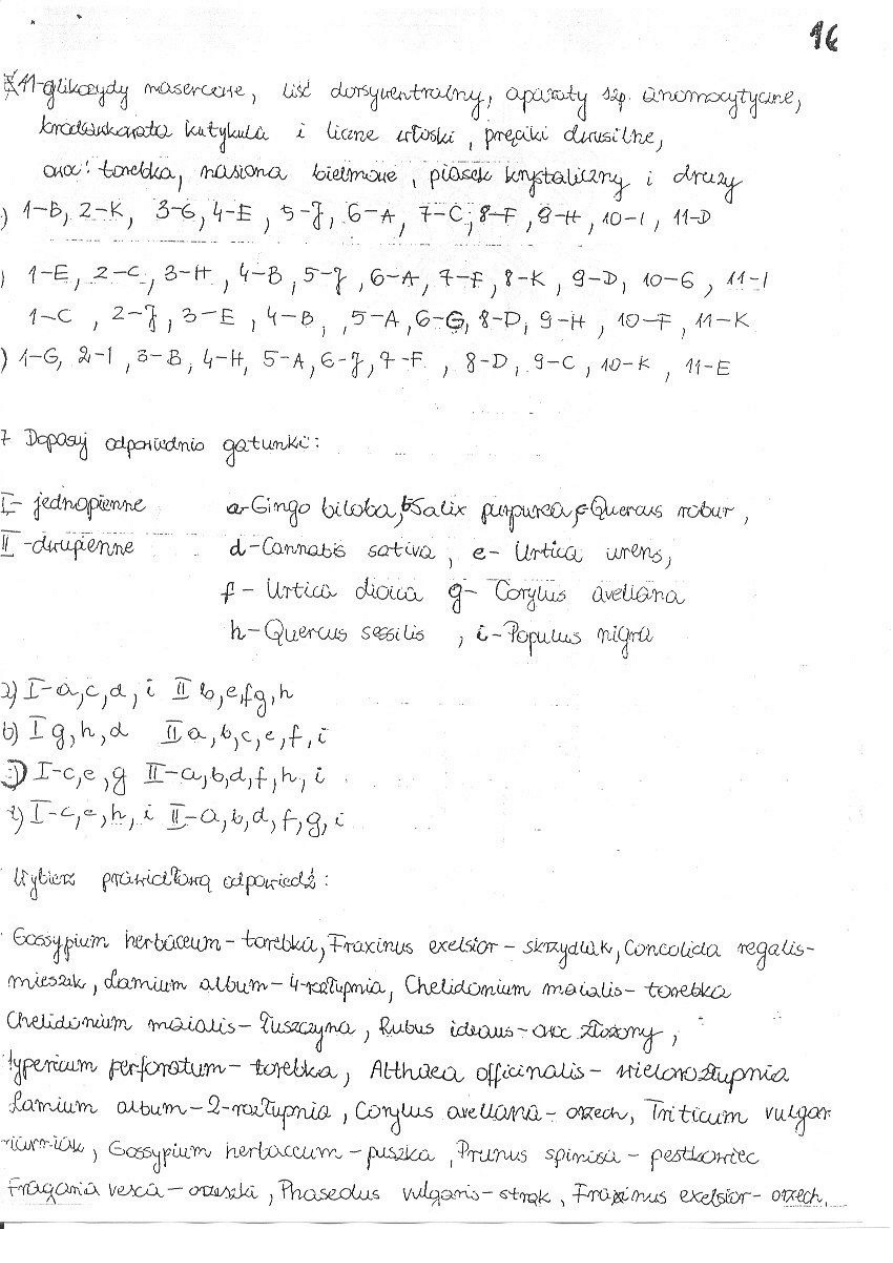 16
11-glikozydy nasercowe, liść dorsywentralny, aparaty szp. anomocytyczne,
kutykula i liczne włoski, pręciki dwusilne,
owoc: torebka, nasiona bielmowe, piasek krystaliczny i druzy
) 1-B, 2-K, 3-G, 4-E, 5-J, 6-A, 7-C, 8-F, 9-H, 10-I, 11-D
) 1-E, 2-C, 3-H, 4-B, 5-J, 6-A, 7-F, 8-K, 9-D, 10-G, 11-I
1-C, 2-J, 3-E, 4-B, 5-A, 6-G, 8-D, 9-H, 10-F, 11-K
) 1-G, 2-I, 3-B, 4-H, 5-A, 6-J, 7-F, 8-D, 9-C, 10-K, 11-E
7 Dopasuj odpowiednio gatunki:
I- jednopienne a-Gingo biloba, b-Salix purpurea, c-Quercus robur,
II-dwupienne d-Cannabis sativa, e- Urtica urens,
f- Urtica dioica g- Corylus avellana
h-Quercus sessilis, i-Populus nigra
a) I-a,c,d,i II b,e,f,g,h
b) I g,h,d II a,b,c,e,f,i
c) I-c,e,g II-a,b,d,f,h,i
d) I-c,e,h,i II-a,b,d,f,g,i
Wybierz prawidłową odpowiedź:
Gossypium herbaceum-torebka, Fraxinus exelsior-skrzydlak, Concolida regalis-
mieszek, Lamium album-4-rozłupnia, Chelidonium maialis-torebka
Chelidonium maialis-łuszczyna, Rubus ideaus-owoc złożony,
Hypericum perforatum-torebka, Althaea officinalis-wielorozłupnia
Lamium album-2-rozłupnia, Corylus avellana-orzech, Triticum vulgar
ziarniak, Gossypium herbaccum-puszka, Prunus spinisa-pestkowiec
Fragania vesca-orzeszki, Phaseolus vulgaris-strąk, Fraxinus exelsior-orzech,